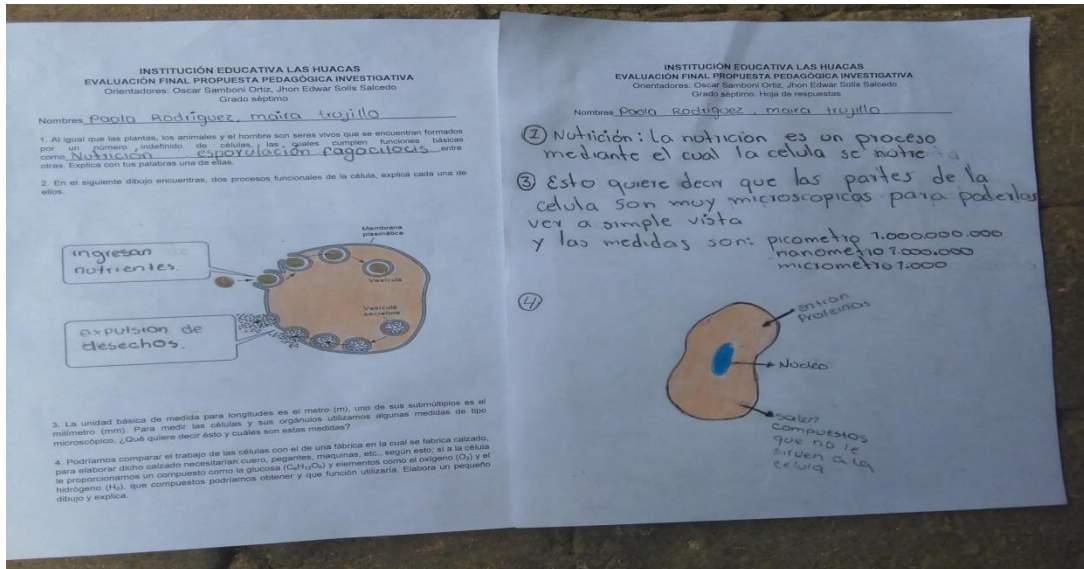 INSTITUCIÓN EDUCATIVA LAS HUACAS
EVALUACIÓN FINAL PROPUESTA PEDAGÓGICA INVESTIGATIVA
Orientadores: Oscar Samboni Ortiz, Jhon Edwar Solis Salcedo
Grado séptimo
Nombres Paola Rodriguez, maira trujillo
1. Al igual que las plantas, los animales y el hombre son seres vivos que se encuentran formados
por un número indefinido de células, las quales cumplen funciones básicas
como Nutrición esporulación fagocitocis entre
otras. Explica con tus palabras una de ellas.
2. En el siguiente dibujo encuentras, dos procesos funcionales de la célula, explica cada una de
ellos.
ingresan
nutrientes.
Membrana
plasmática
Vesícula
Vesícula
secretora
expulsion de
desechos.
3. La unidad básica de medida para longitudes es el metro (m), uno de sus submúltiplos es el
milímetro (mm). Para medir las células y sus orgánulos utilizamos algunas medidas de tipo
microscópico, ¿Qué quiere decir ésto y cuáles son estas medidas?
4. Podríamos comparar el trabajo de las células con el de una fábrica en la cual se fabrica calzado,
para elaborar dicho calzado necesitarían cuero, pegantes, maquinas, etc., según esto, si a la célula
le proporcionamos un compuesto como la glucosa (C₆H₁₂O₆) y elementos como el oxígeno (O₂) y el
hidrógeno (H₂), que compuestos podríamos obtener y que función utilizaría. Elabora un pequeño
dibujo y explica.
INSTITUCIÓN EDUCATIVA LAS HUACAS
EVALUACIÓN FINAL PROPUESTA PEDAGÓGICA INVESTIGATIVA
Orientadores: Oscar Samboni Ortiz, Jhon Edwar Solis Salcedo
Grado séptimo. Hoja de respuestas
Nombres Paola Rodriguez, maira trujillo
① Nutrición: la notrición es un proceso
mediante el cual la celula se notre
③ Esto quiere decir que las partes de la
celula son muy microscopicas para poderlas
ver a simple vista
y las medidas son: picometro 1.000.000.000
nanometro 1.000.000
micrometro 1.000
④
entran
proteinas
Nocleo
salen
compuestos
que no le
sirven a la
celula